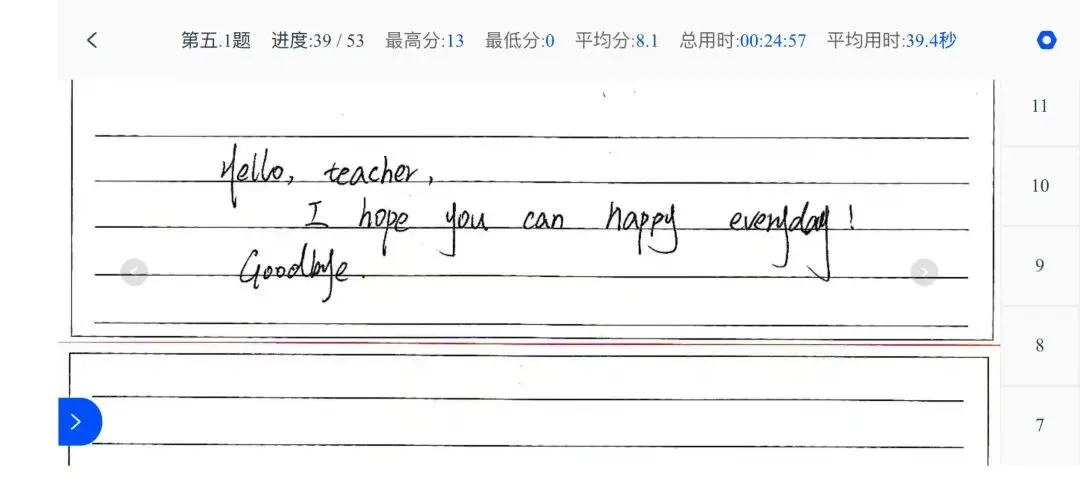 第五.1题 进度:39 / 53 最高分:13 最低分:0 平均分:8.1 总用时:00:24:57 平均用时:39.4秒
11
Hello, teacher,
10
I hope you can happy everyday!
Goodbye.
9
8
7